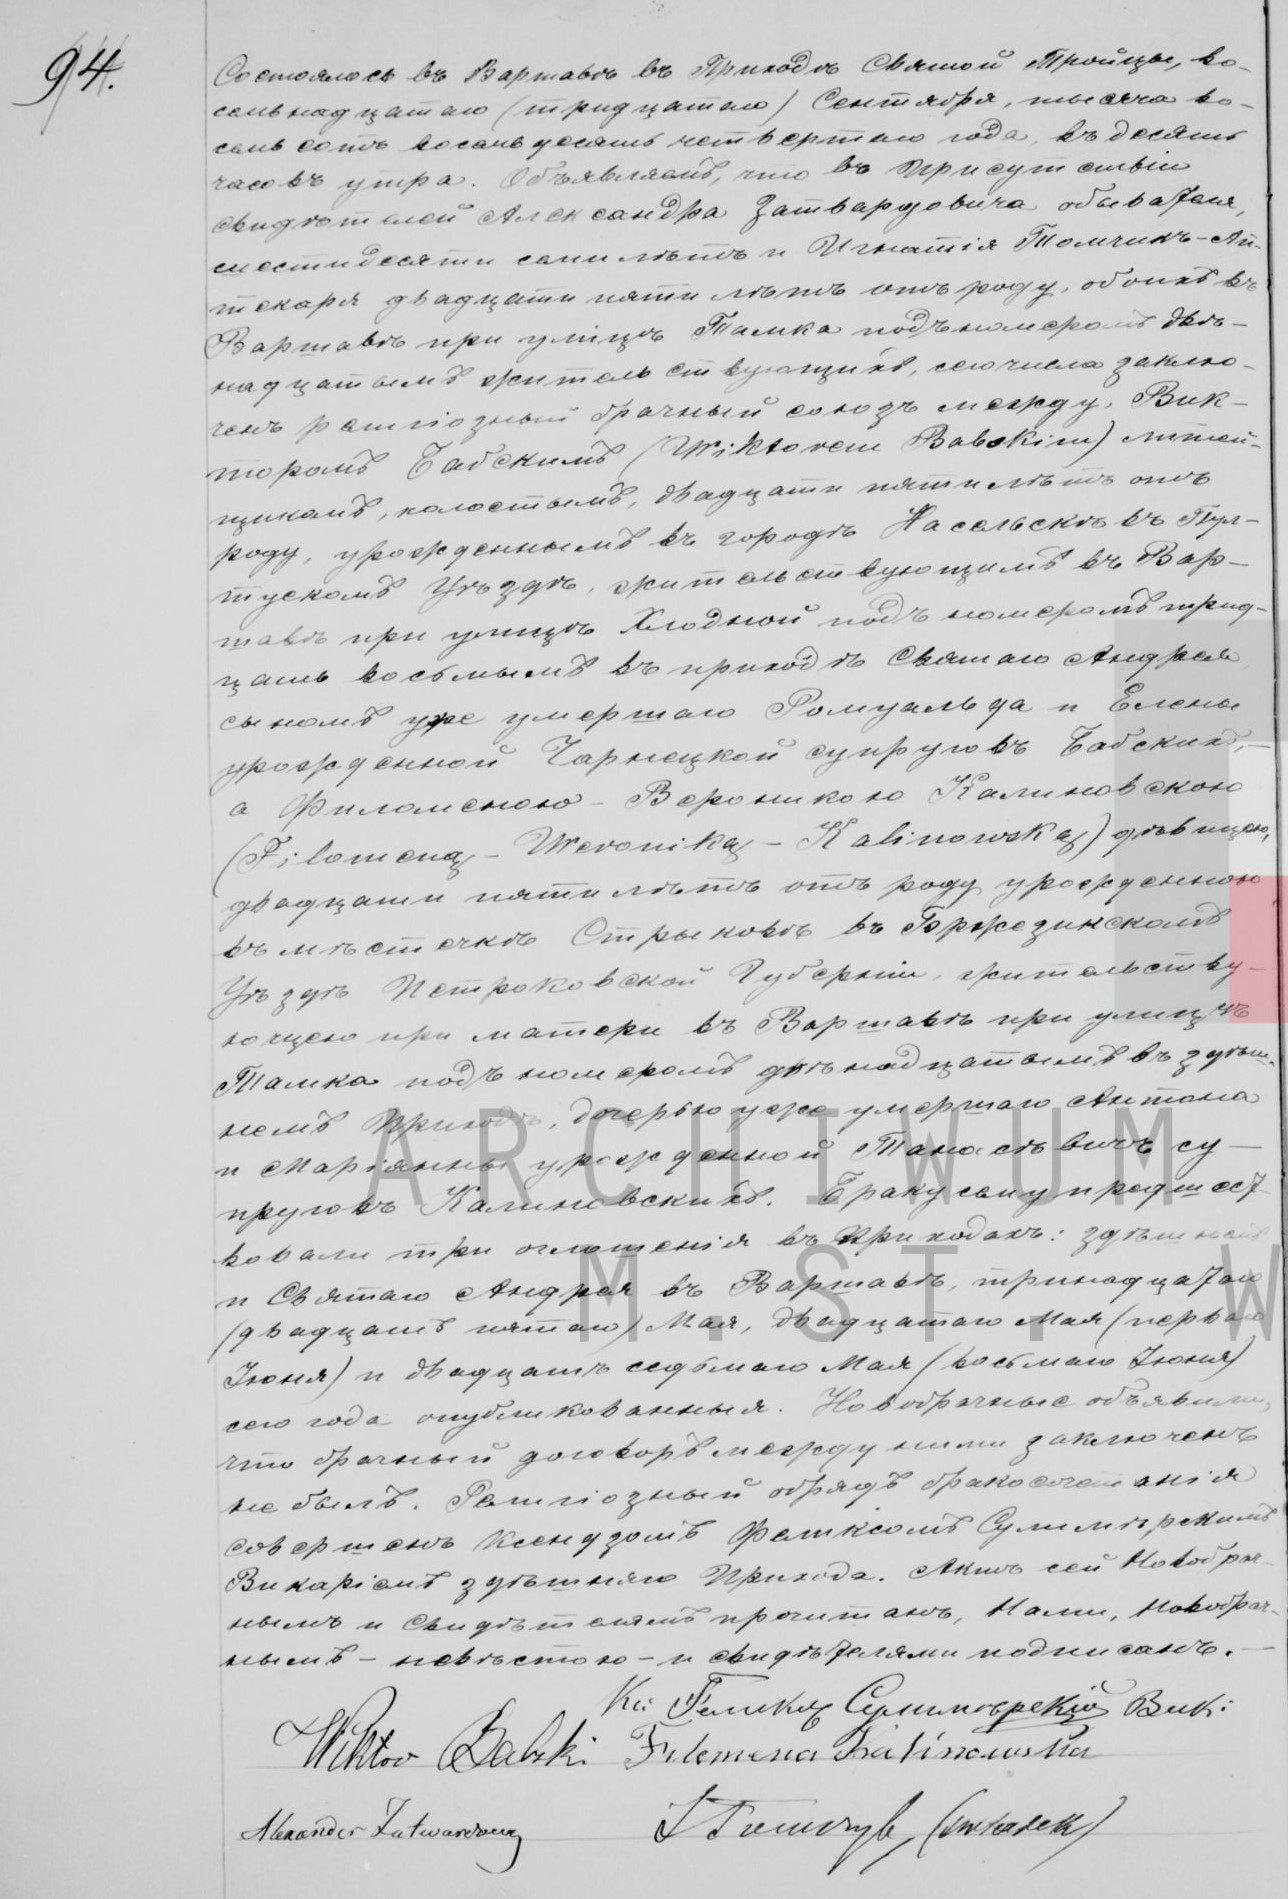 94.
Состоялось въ Варшавѣ въ Приходѣ Святой Тройцы, во-
семьнадцатаго (тридцатаго) Сентября, тысяча во-
семь сотъ восемьдесятъ четвертаго года, въ десять
часовъ утра. Объявляемъ, что въ присутствіи
свидѣтелей Александра Затвардовича обывателя,
шестидесяти семи лѣтъ и Игнатія Томчикъ - Ап-
текаря двадцати пяти лѣтъ отъ роду, обоихъ въ
Варшавѣ при улицѣ Тамка подъ номеромъ двѣ-
надцатымъ жительствующихъ, сего числа заклю-
ченъ религіозный брачный союзъ между, Вик-
торомъ Бабскимъ (Wiktorem Babskim) литей-
щикомъ, холостымъ, двадцати пяти лѣтъ отъ
роду, урожденнымъ въ городѣ Насельскѣ въ Пул-
тускомъ Уѣздѣ, жительствующимъ въ Вар-
шавѣ при улицѣ Хлодной подъ номеромъ трид-
цать восьмымъ въ приходѣ Святаго Андрея
сыномъ уже умершаго Ромуальда и Елены
урожденной Чарнецкой супруговъ Бабскихъ, —
а Филоменою - Вероникою Калиновскою
(Filomeną - Weroniką - Kalinowską) дѣвицею,
двадцати пяти лѣтъ отъ роду урожденною
въ мѣстечкѣ Стрыковѣ въ Бржезинскомъ
Уѣздѣ Петроковской Губерніи, жительству-
ющею при матери въ Варшавѣ при улицѣ
Тамка подъ номеромъ двѣнадцатымъ въ здѣш-
немъ Приходѣ, дочерью уже умершаго Антона
и Маріянны урожденной Танасѣвичъ су-
пруговъ Калиновскихъ. Браку сему предшест-
вовали три оглашенія въ Приходахъ: здѣшнемъ
и Святаго Андрея въ Варшавѣ, тринадцатаго
(двадцать пятаго) Мая, двадцатаго Мая (перваго
Іюня) и двадцать седьмаго Мая (восьмаго Іюня)
сего года опубликованныя. Новобрачные объявили,
что брачный договоръ между ними заключенъ
не былъ. Религіозный обрядъ бракосочетанія
совершенъ Ксендзомъ Феликсомъ Сулимѣрскимъ
Викаріемъ здѣшняго Прихода. Актъ сей Новобрач-
нымъ и Свидѣтелямъ прочитанъ, Нами, Новобрач-
нымъ - невѣстою - и свидѣтелями подписанъ. —
Кс: Феликсъ Сулимѣрскій Вик:
Wiktor Babski Filomena Kalinowska
Alexander Zatwardowicz
I Tomczyk (świadek)
ARCHIWUM
M. ST. W